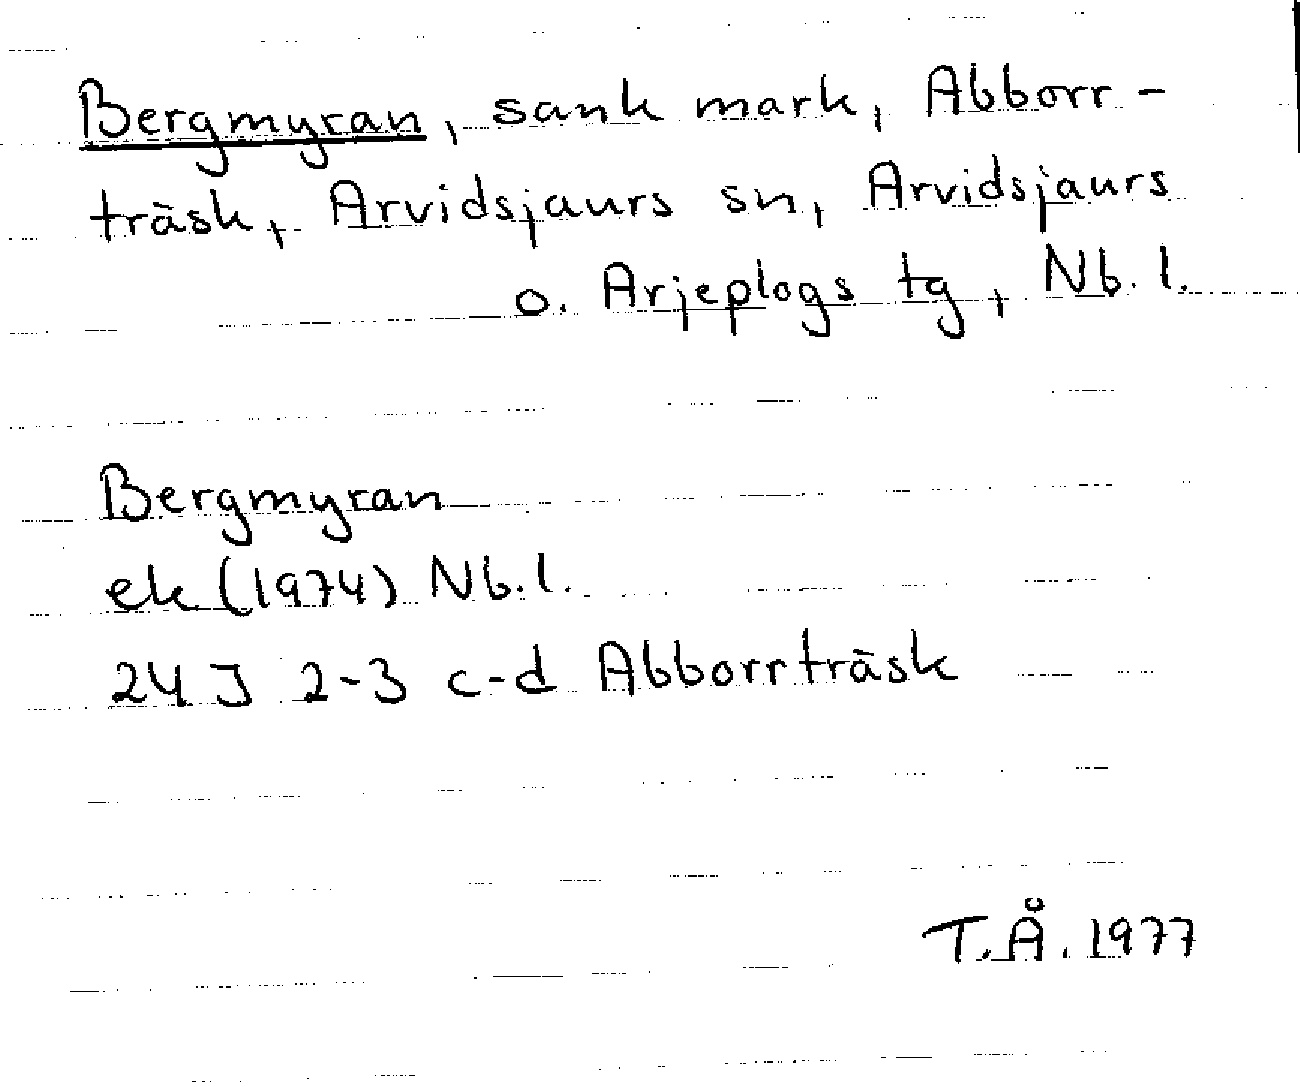 Bergmyran, sank mark, Abborr-
träsk, Arvidsjaurs sn, Arvidsjaurs
o. Arjeplogs tg, Nb. l.
Bergmyran
ek (1974) Nb. l.
24 J 2-3 c-d Abborrträsk
T.Å. 1977